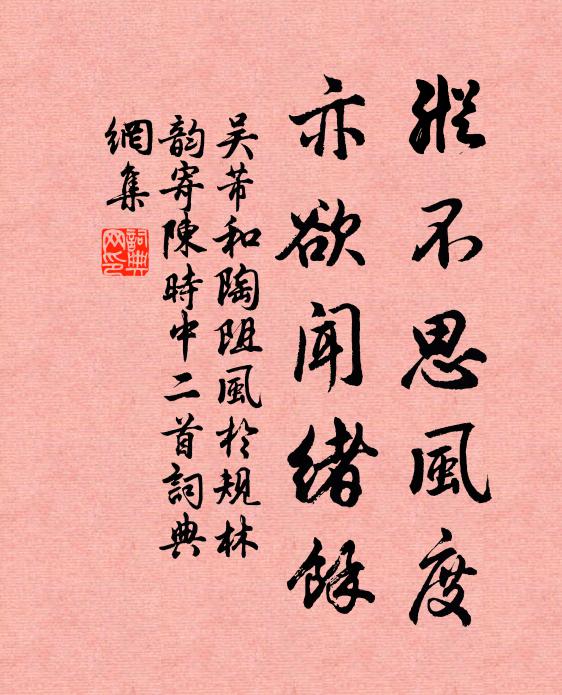 縱不思風度
亦欲聞緒餘
吴芾和陶阻風於規林
韵寄陳時中二首詞典
網集
詞典
网印